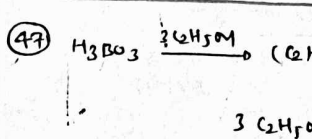 47 H3BO3 3C2H5OH (C2H
3 C2H5O